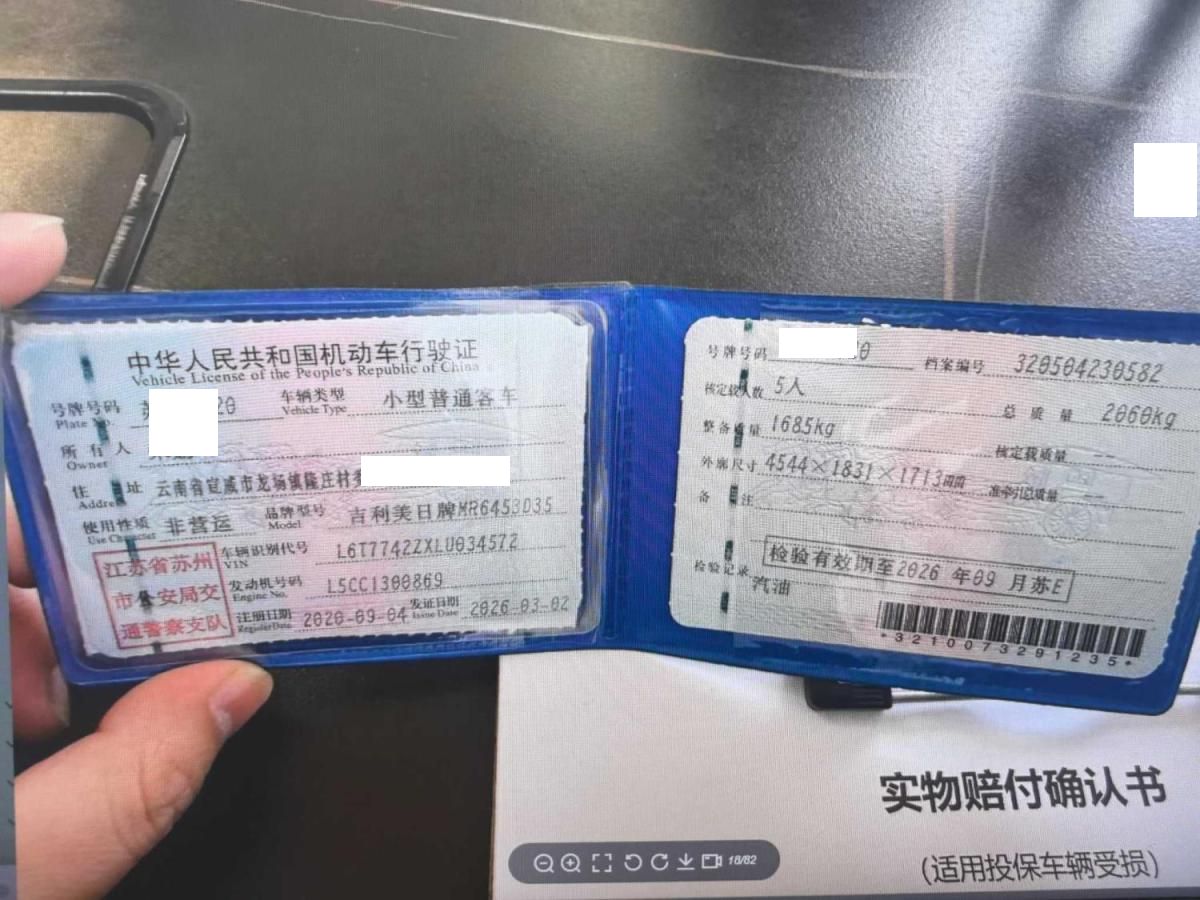 中华人民共和国机动车行驶证
Vehicle License of the People's Republic of China
号牌号码 20 车辆类型 小型普通客车
Plate No. Vehicle Type
所有人
Owner
住址 云南省宣威市龙场镇隆庄村
Address
使用性质 非营运 品牌型号 吉利美日牌MR6453D35
Use Character Model
江苏省苏州
市公安局交
通警察支队
车辆识别代号 L6T7742ZXLU034572
VIN
发动机号码 L5CC1300869
Engine No.
注册日期 2020-09-04 发证日期 2026-03-02
Register Date Issue Date
号牌号码 0 档案编号 320504230582
核定载人数 5人 总质量 2060kg
整备质量 1685kg 核定载质量 --
外廓尺寸 4544×1831×1713mm 准牵引总质量 --
备注
检验有效期至2026 年09 月苏E
检验记录 汽油
*3210073291235*
实物赔付确认书
(适用投保车辆受损)
18/82